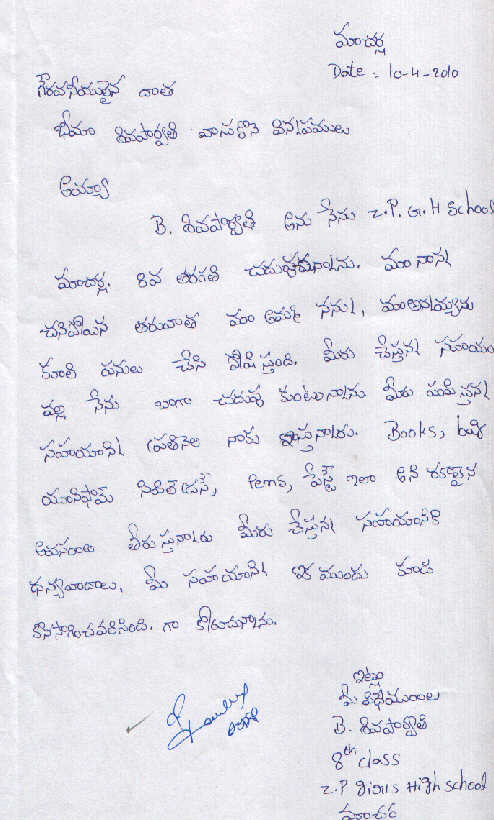 మాచర్ల
Date : 10-4-2010
గౌరవనీయులైన దాత
బీమా శివపార్వతి వ్రాసుకొనె విన్నపములు
అయ్యా
B. శివపార్వతి అను నేను Z.P. G. H School
మాచర్ల. 8వ తరగతి చదువుచున్నాను. మా నాన్న
చనిపోయిన తరువాత మా అమ్మ నన్ను, మా అన్నయ్యను
కూలి పనులు చేసి పోషిస్తుంది. మీరు చేస్తున్న సహాయం
వల్ల నేను బాగా చదువు కుంటున్నాను మీరు పంపిస్తున్న
సహాయాన్ని ప్రతినెల నాకు ఇస్తున్నారు. Books, bag
యూనిఫామ్ Pens, పేస్ట్ ఇలా అన్ని రకాలైన
అవసరాలు తీరుస్తున్నారు మీరు చేస్తున్న సహాయానికి
ధన్యవాదాలు, మీ సహాయాన్ని ఇక ముందు కూడా
కొనసాగించవలసింది. గా కోరుచున్నాను.
ఇట్లు
మీ విధేయురాలు
B. శివపార్వతి
8th class
Z.P Girls High school
మాచర్ల